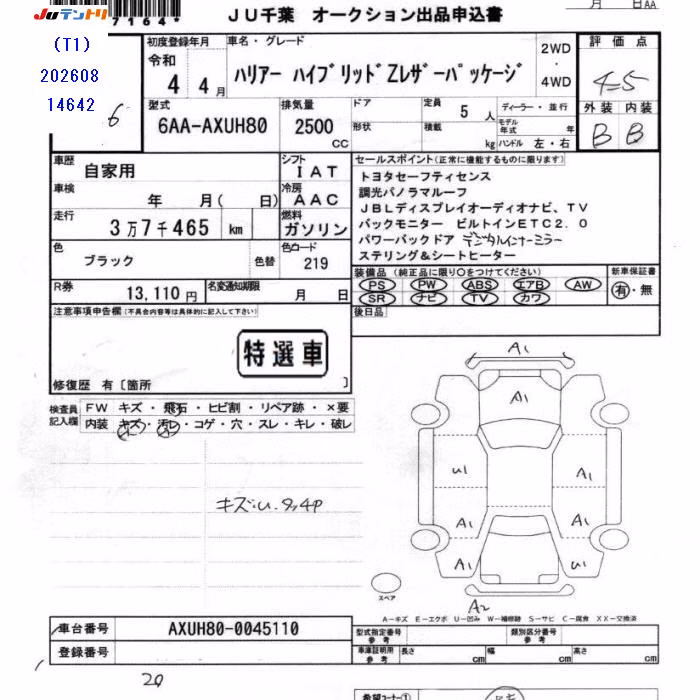 JUテントリ
7164*
JU千葉 オークション出品申込書
月 日AA
(T1)
202608
14642
6
初度登録年月
令和
4 4月
車名・グレード
ハリアー ハイブリッドZレザーパッケージ
2WD
・
4WD
評価点
4.5
外装 内装
B B
型式
6AA-AXUH80
排気量
2500
CC
ドア
形状
定員
5人
積載
kg
ディーラー・並行
モデル年式 年
ハンドル 左・右
車歴
自家用
シフト
IAT
車検
年 月( 日)
冷房
AAC
走行
3万7千465 km
燃料
ガソリン
色
ブラック
色替
色コード
219
R券
13,110円
名変通知期限
月 日
セールスポイント(正常に機能するものに限ります)
トヨタセーフティセンス
調光パノラマルーフ
JBLディスプレイオーディオナビ、TV
バックモニター ビルトインETC2.0
パワーバックドア デジタルインナーミラー
ステリング&シートヒーター
装備品(純正品に限り○をつけてください)
PS PW ABS エアB AW
SR ナビ TV カワ
新車保証書
有・無
後日品
注意事項申告欄(不具合内容等は具体的に記入して下さい)
特選車
修復歴 有〔箇所 〕
検査員
記入欄
FW キズ・飛石・ヒビ割・リペア跡・×要
内装 キズ・汚レ・コゲ・穴・スレ・キレ・破レ
A1
A1
U1
A1
A1
A1
A1
U1
A2
スペア
A-キズ E-エクボ U-凹み W-補修跡 S-サビ C-腐食 XX-交換済
車台番号
AXUH80-0045110
登録番号
型式指定番号
参考
類別区分番号
参考
車庫証明用
参考
長さ cm
幅 cm
高さ cm
20
希望コーナー①